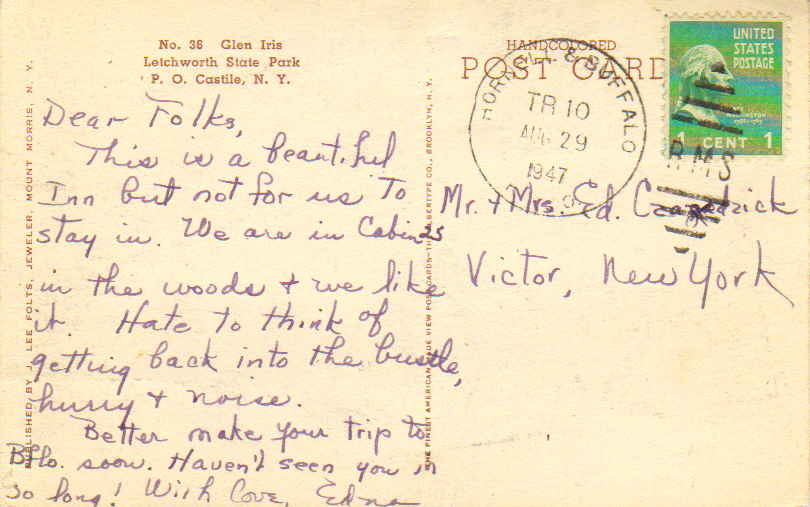 No. 36 Glen Iris
Letchworth State Park
P. O. Castile, N. Y.
HANDCOLORED
POST CARD
UNITED
STATES
POSTAGE
1 CENT 1
HORNELL & BUFFALO
TR 10
AUG 29
1947
RMS
Dear Folks,
This is a beautiful
Inn but not for us to
stay in. We are in Cabins
in the woods + we like
it. Hate to think of
getting back into the bustle,
hurry + noise.
Better make your trip to
Bflo. soon. Haven't seen you in
so long! With Love, Edna
Mr. + Mrs. Ed.
Victor, New York
PUBLISHED BY J. LEE FOLTS, JEWELER, MOUNT MORRIS, N. Y.
THE FINEST AMERICAN MADE VIEW POST CARDS—THE ALBERTYPE CO., BROOKLYN, N. Y.